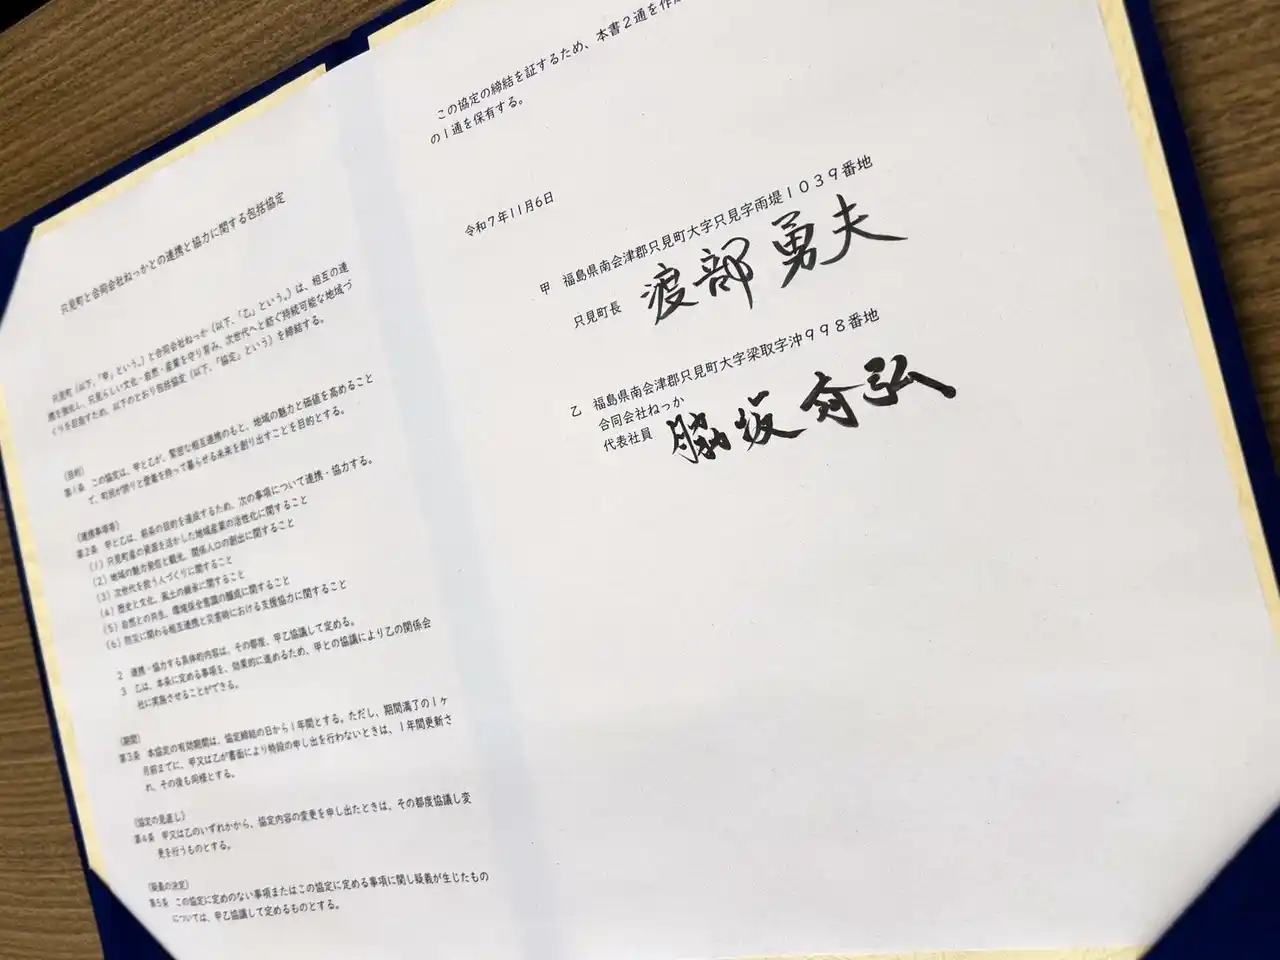 只見町と合同会社ねっかとの連携と協力に関する包括協定
只見町（以下、「甲」という。）と合同会社ねっか（以下、「乙」という。）は、相互の連
携を強化し、只見らしい文化・自然・産業を守り育み、次世代へと紡ぐ持続可能な地域づ
くりを目指すため、以下のとおり包括協定（以下、「協定」という）を締結する。
（目的）
第1条　この協定は、甲と乙が、緊密な相互連携のもと、地域の魅力と価値を高めること
で、町民が誇りと愛着を持って暮らせる未来を創り出すことを目的とする。
（連携事項等）
第2条　甲と乙は、前条の目的を達成するため、次の事項について連携・協力する。
（1）只見町産の資源を活かした地域産業の活性化に関すること
（2）地域の魅力発信と観光、関係人口の創出に関すること
（3）次世代を担う人づくりに関すること
（4）歴史と文化、風土の継承に関すること
（5）自然との共生、環境保全意識の醸成に関すること
（6）防災に関わる相互連携と災害時における支援協力に関すること
2　連携・協力する具体的内容は、その都度、甲乙協議して定める。
3　乙は、本条に定める事項を、効果的に進めるため、甲との協議により乙の関係会
社に実施させることができる。
（期間）
第3条　本協定の有効期間は、協定締結の日から1年間とする。ただし、期間満了の1ヶ
月前までに、甲又は乙が書面により特段の申し出を行わないときは、1年間更新さ
れ、その後も同様とする。
（協定の見直し）
第4条　甲又は乙のいずれかから、協定内容の変更を申し出たときは、その都度協議し変
更を行うものとする。
（疑義の決定）
第5条　この協定に定めのない事項またはこの協定に定める事項に関し疑義が生じたもの
については、甲乙協議して定めるものとする。
この協定の締結を証するため、本書2通を作成
の1通を保有する。
令和7年11月6日
甲　福島県南会津郡只見町大字只見字雨堤1039番地
只見町長　渡部 勇夫
乙　福島県南会津郡只見町大字梁取字沖998番地
合同会社ねっか
代表社員　脇坂 斉弘